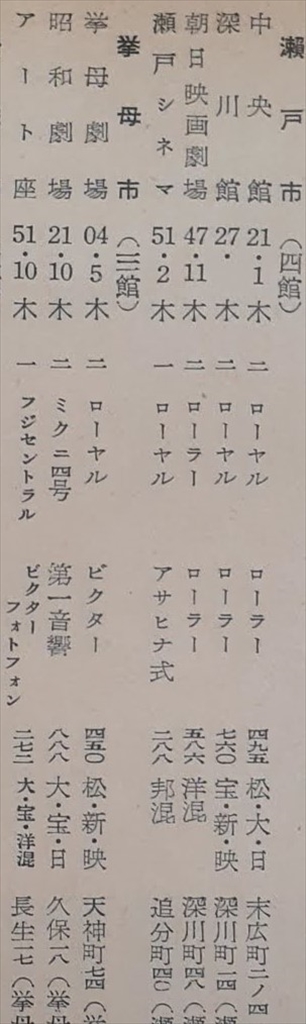 瀬戸市(四館)
中央館 21・1 木 二 ローヤル ローラー 四九五 松・大・日 末広町二ノ四
深川館 27・ 木 二 ローヤル ローラー 七六〇 宝・新・映 深川町一四(瀬
朝日映画劇場 47・11 木 二 ローラー ローラー 五八六 洋混 深川町四八(瀬
瀬戸シネマ 51・2 木 一 ローヤル アサヒナ式 二八八 邦混 追分町四〇(瀬
挙母市(三館)
挙母劇場 04・5 木 二 ローヤル ビクター 四五〇 松・新・映 天神町七四(挙
昭和劇場 21・10 木 二 ミクニ四号 第一音響 八八八 大・宝・日 久保一八(挙
アート座 51・10 木 一 フジセントラル ビクターフォトフォン 二七二 大・宝・洋混 長生二七(挙母